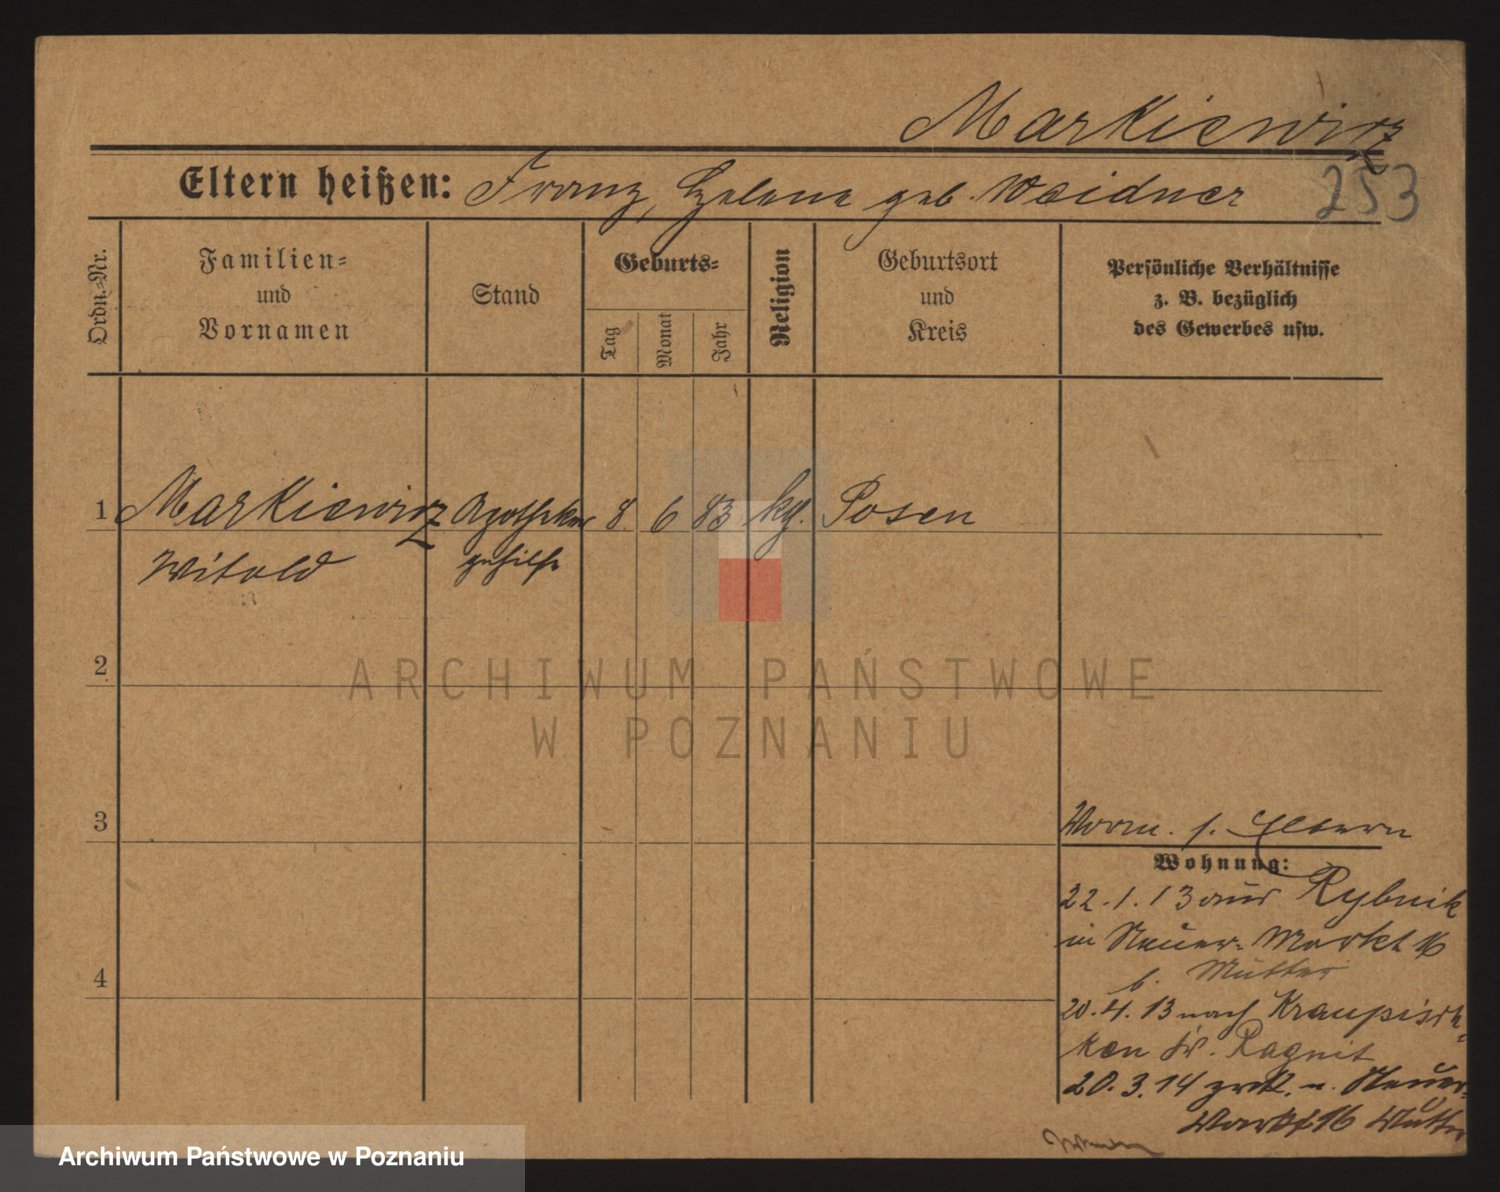 Markiewicz
253
Eltern heißen: Franz, Helene geb. Weidner
Ordn.-Nr.
Familien-
und
Vornamen
Stand
Geburts-
Tag
Monat
Jahr
Religion
Geburtsort
und
Kreis
Persönliche Verhältnisse
z. B. bezüglich
des Gewerbes usw.
1 Markiewicz Apotheker 8 6 83 kg. Posen
Witold gehilfe
2
ARCHIWUM PAŃSTWOWE
W POZNANIU
3
s. Eltern
Wohnung:
22.1.13 aus Rybnik
in Neuer-Markt 16
b. Mutter
20.4.13 nach Kraupisch-
ken Kr. Ragnit
4
20.3.14. zrck. n. Neuer-
Markt 16 Mutter
Archiwum Państwowe w Poznaniu